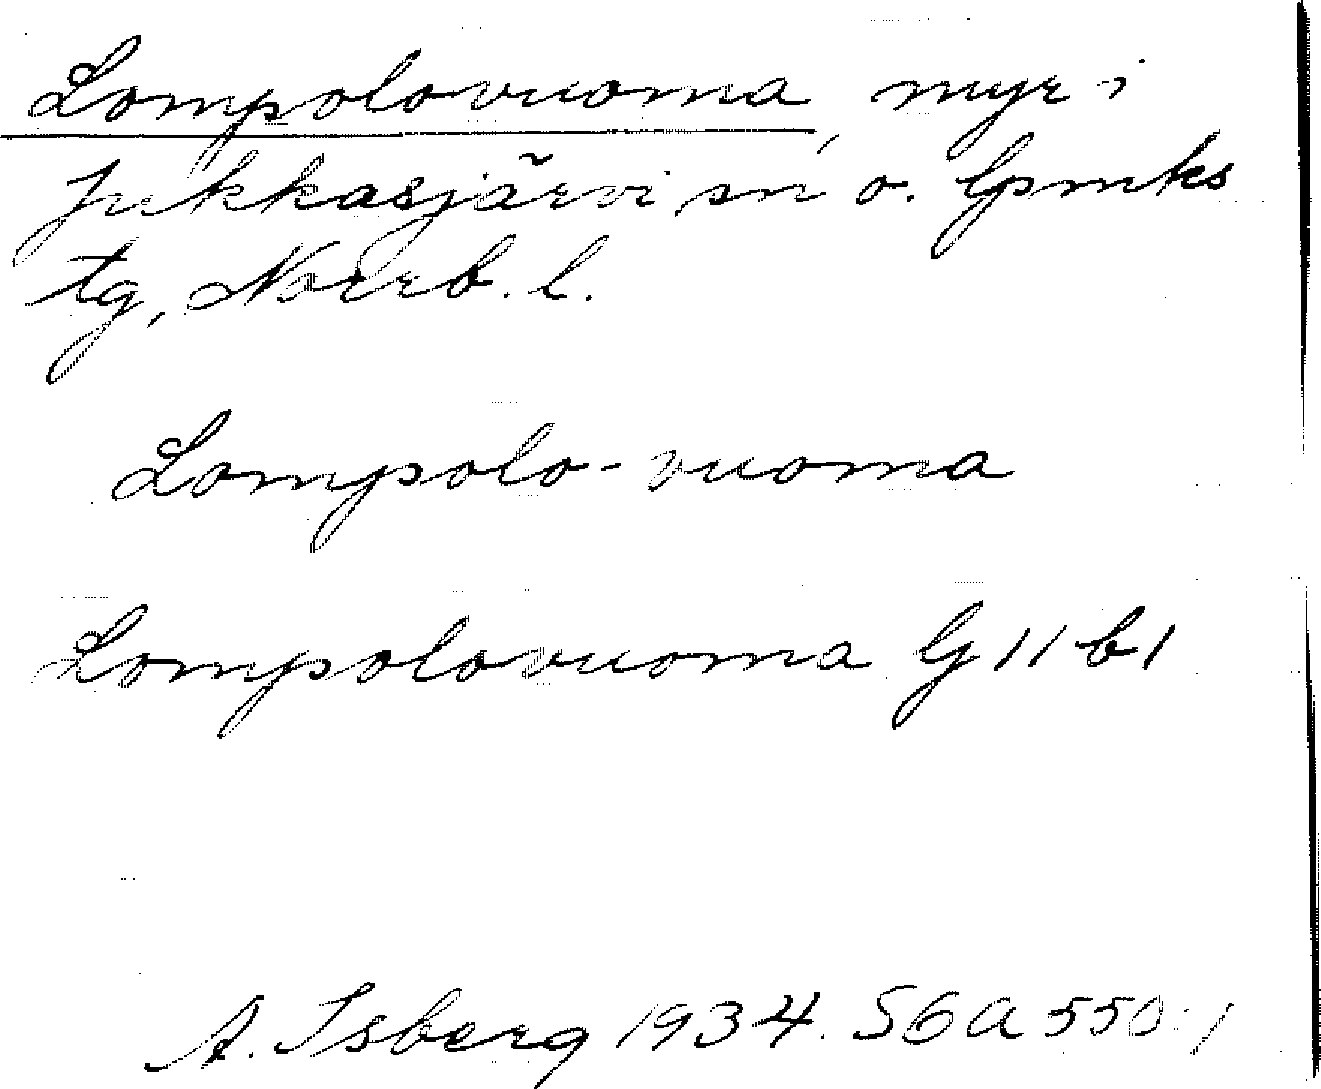 Lompolovuoma, myr i
Jukkasjärvi sn o. lpmks
tg, Norrb. l.
Lompolo-vuoma
Lompolovuoma G 11 b 1
A. Isberg 1934. SGA 550:1